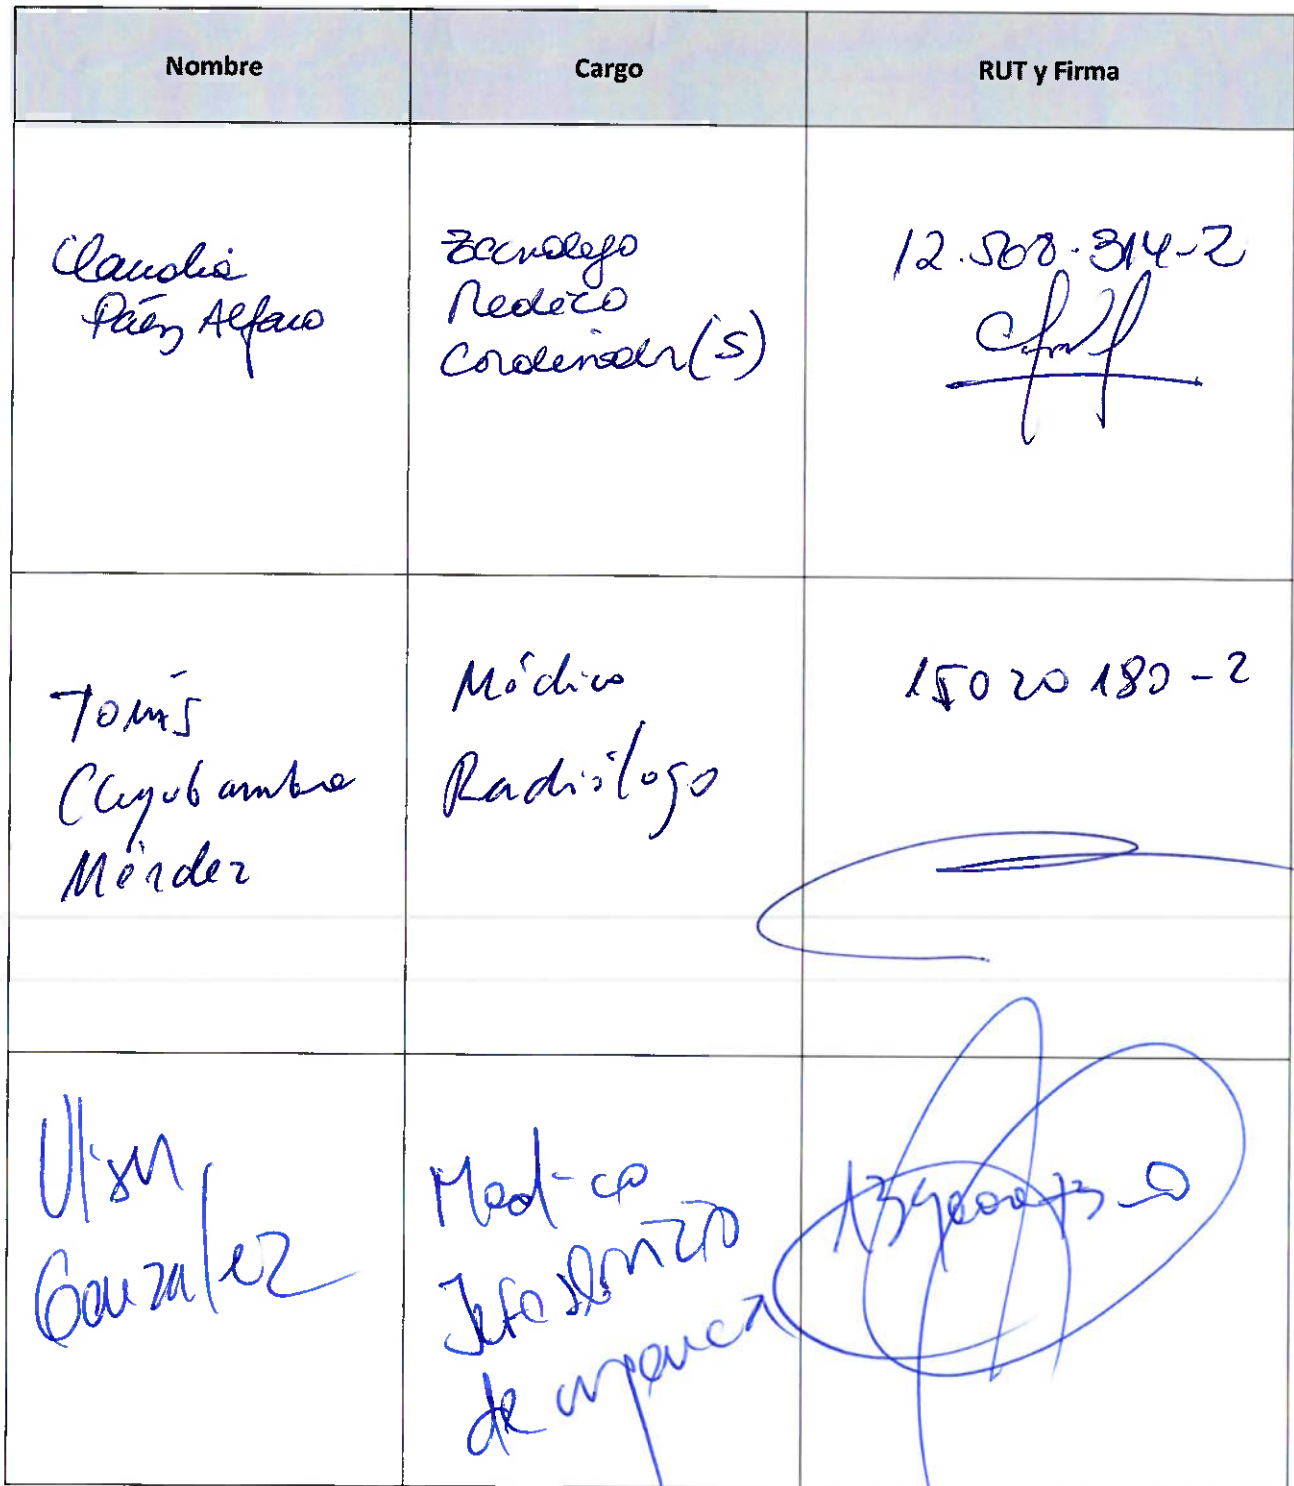 Nombre
Cargo
RUT y Firma
Claudia
Páez Alfaro
Tecnologo
Medico
Cordinador (S)
12.508.314-2
Tomás
Méndez
Médico
Radiólogo
15020180-2
Gonzalez
Medico
Jefe Servicio
de urgencia